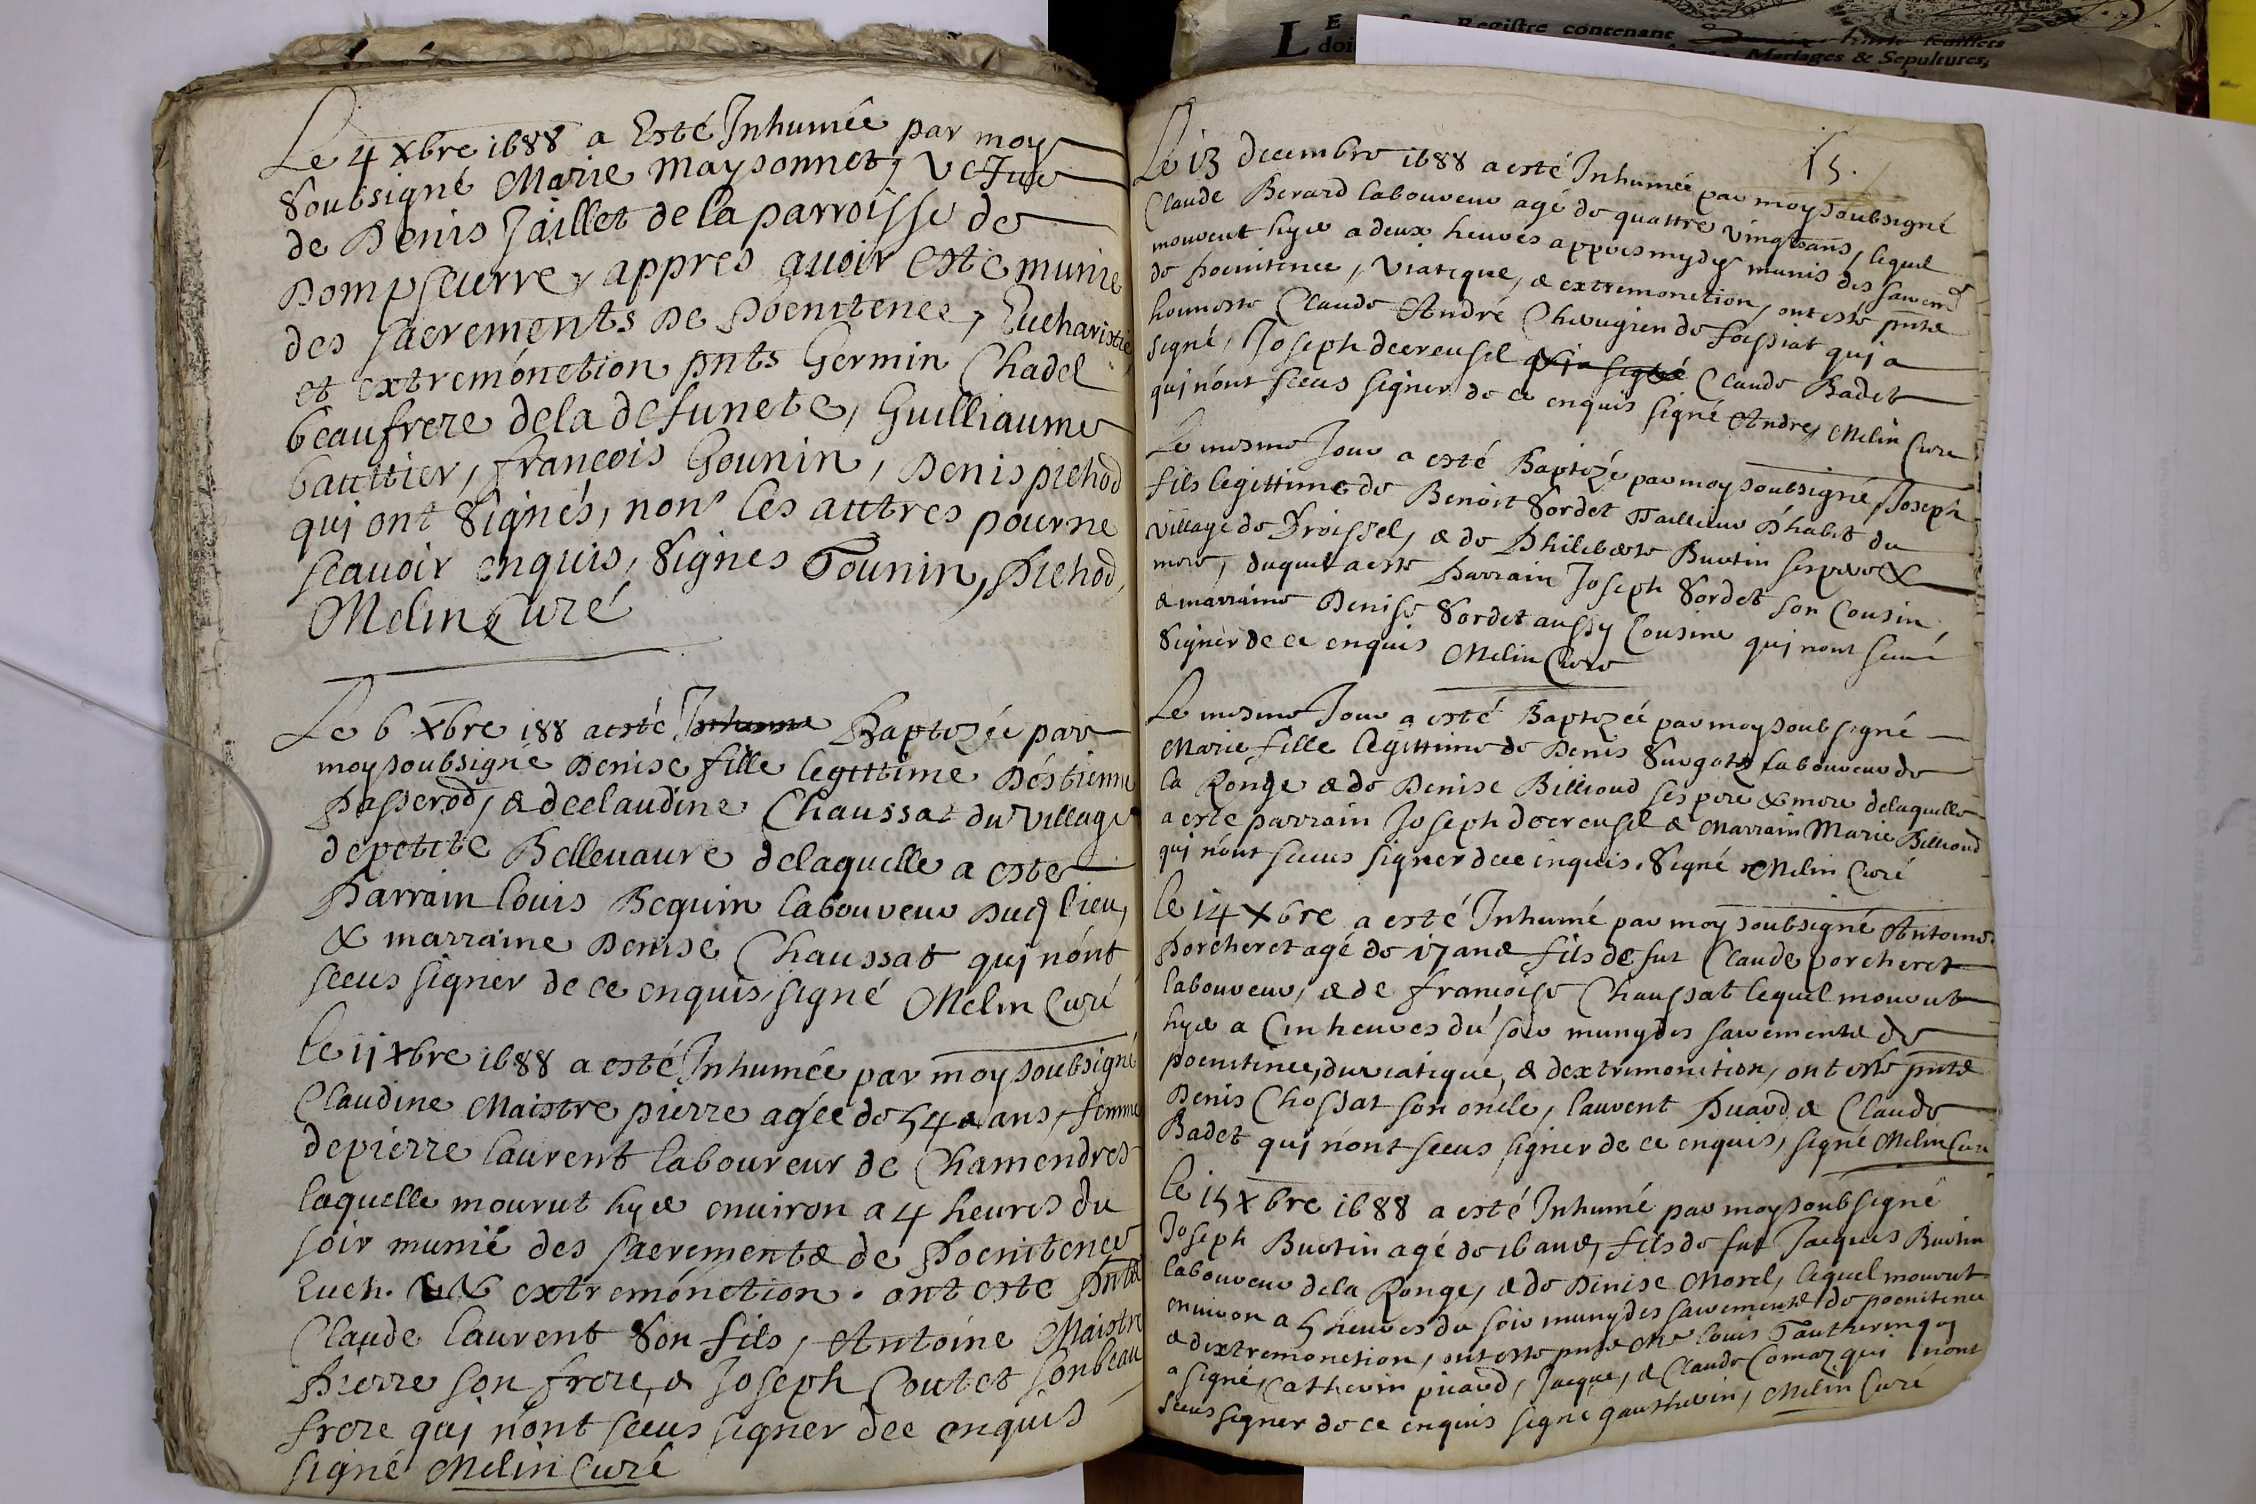 Le 4 Xbre 1688 a Esté Inhumée par moy
soubsigné Marie Maysonnet, vefue
de Denis Jaillet de la parroisse de
Dompseurre, appres auoir este munie
des sacrements de Poenitence, Eucharistie
et extremónction pnts Germin Chadel
beaufrere dela defuncte, Guilliaume
bauttier, françois Gounin, Denis pichod
qui ont signés, non les auttres pour ne
scauoir enquis, signes Gounin, Pichod,
Melin Curé
Le 6 Xbre 188 a esté Inhumé Baptizée par
moy soubsigné Denise fille legittime Déstienne
Passerod, & de claudine Chaussat du village
de petite Belleuaure delaquelle a este
Parrain louis Beguin laboureur dud lieu,
& marraine Denise Chaussat qui nónt
sceus signer de ce enquis, signé Melin Curé
Le 11 Xbre 1688 a esté Inhumée par moy soubsigné
Claudine Maistre pierre agée de 54 ans, femme
de pierre laurent laboureur de Chamendres
laquelle mourut hyer enuiron a 4 heures du
soir munie des sacrements de Poenitence
Euch. & extremónction. ont este pnts
Claude laurent son fils, Antoine Maistre
Pierre son frere, & Joseph Coutet son beau
frere qui nónt sceus signer dece enquis
signé Melin Curé
15.
Le 13 decembre 1688 a esté Inhumée par moy soubsigné
Claude Berard laboureur agé de quattre vingt ans, lequel
mourut hyer a deux heures appres mydy munis des sacremts
de poenitence, viatique, & extremonction, ont este pnts
honneste Claude André Chirugien de foissiat qui a
signé, Joseph decreusel qui a signé Claude Badet
qui nónt sceus signer de ce enquis signé Andre, Melin Cure
Le mesme Jour a esté Baptizé par moy soubsigné, Joseph
fils legittime de Benoit Sordet Taillieur Dhabit du
village de Froissel, & de Philiberte Buotin ses pere &
mere, duquel a este Parrain Joseph Sordet son Cousin,
& marraine Denise Sordet aussy Cousine qui nont sceus
signer de ce enquis Melin Cure
Le mesme Jour a esté Baptizée par moy soubsigné
Marie fille legittime de Denis laboureur de
la Ronge & de Denise Billioud ses pere & mere delaquelle
a este parrain Joseph decreusel & Marrain Marie Billioud
qui nónt sceus signer de ce enquis. signé Melin Curé
Le 14 Xbre a esté Inhumé par moy soubsigné Antoine
Porcheret agé de 17 ans fils de fut Claude porcheret
laboureur, & de francoise Chaussat lequel mourut
hyer a Cin heures du soir muny des sacrements de
poenitence, du viatique, & dextremonction, ont este pnts
Denis Chossat son oncle, laurent Buard & Claude
Badet qui nónt sceus signer de ce enquis, signé Melin Cure
Le 15 Xbre 1688 a esté Inhumé par moy soubsigné
Joseph Buotin agé de 16 ans, fils de fut Jacques Buotin
laboureur dela Ronge, & de Denise Morel, lequel mourut
enuiron a 5 heures du soir muny des sacrements de poenitence
& dextremonction, ont este pnts Mr louis Gautherin qui
a signé, Catherin picard, Jacque, & Claude Comaz qui nont
sceus signer de ce enquis signé gautherin, Melin Curé
Registre contenant
feuillets
Mariages & Sepultures,